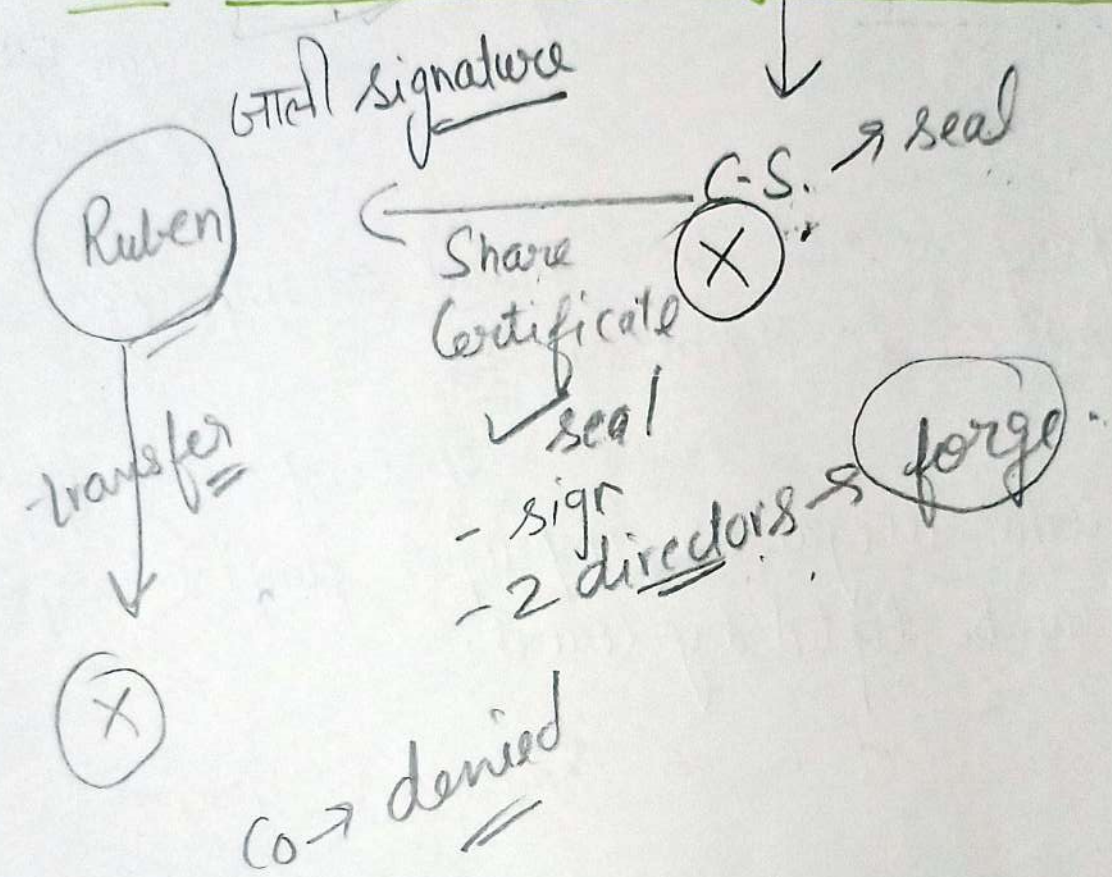 जाली signature
C.S. → seal
X
Ruben
←
Share
Certificate
✓ seal
- sign
- 2 directors → forge
transfer
X
Co → denied